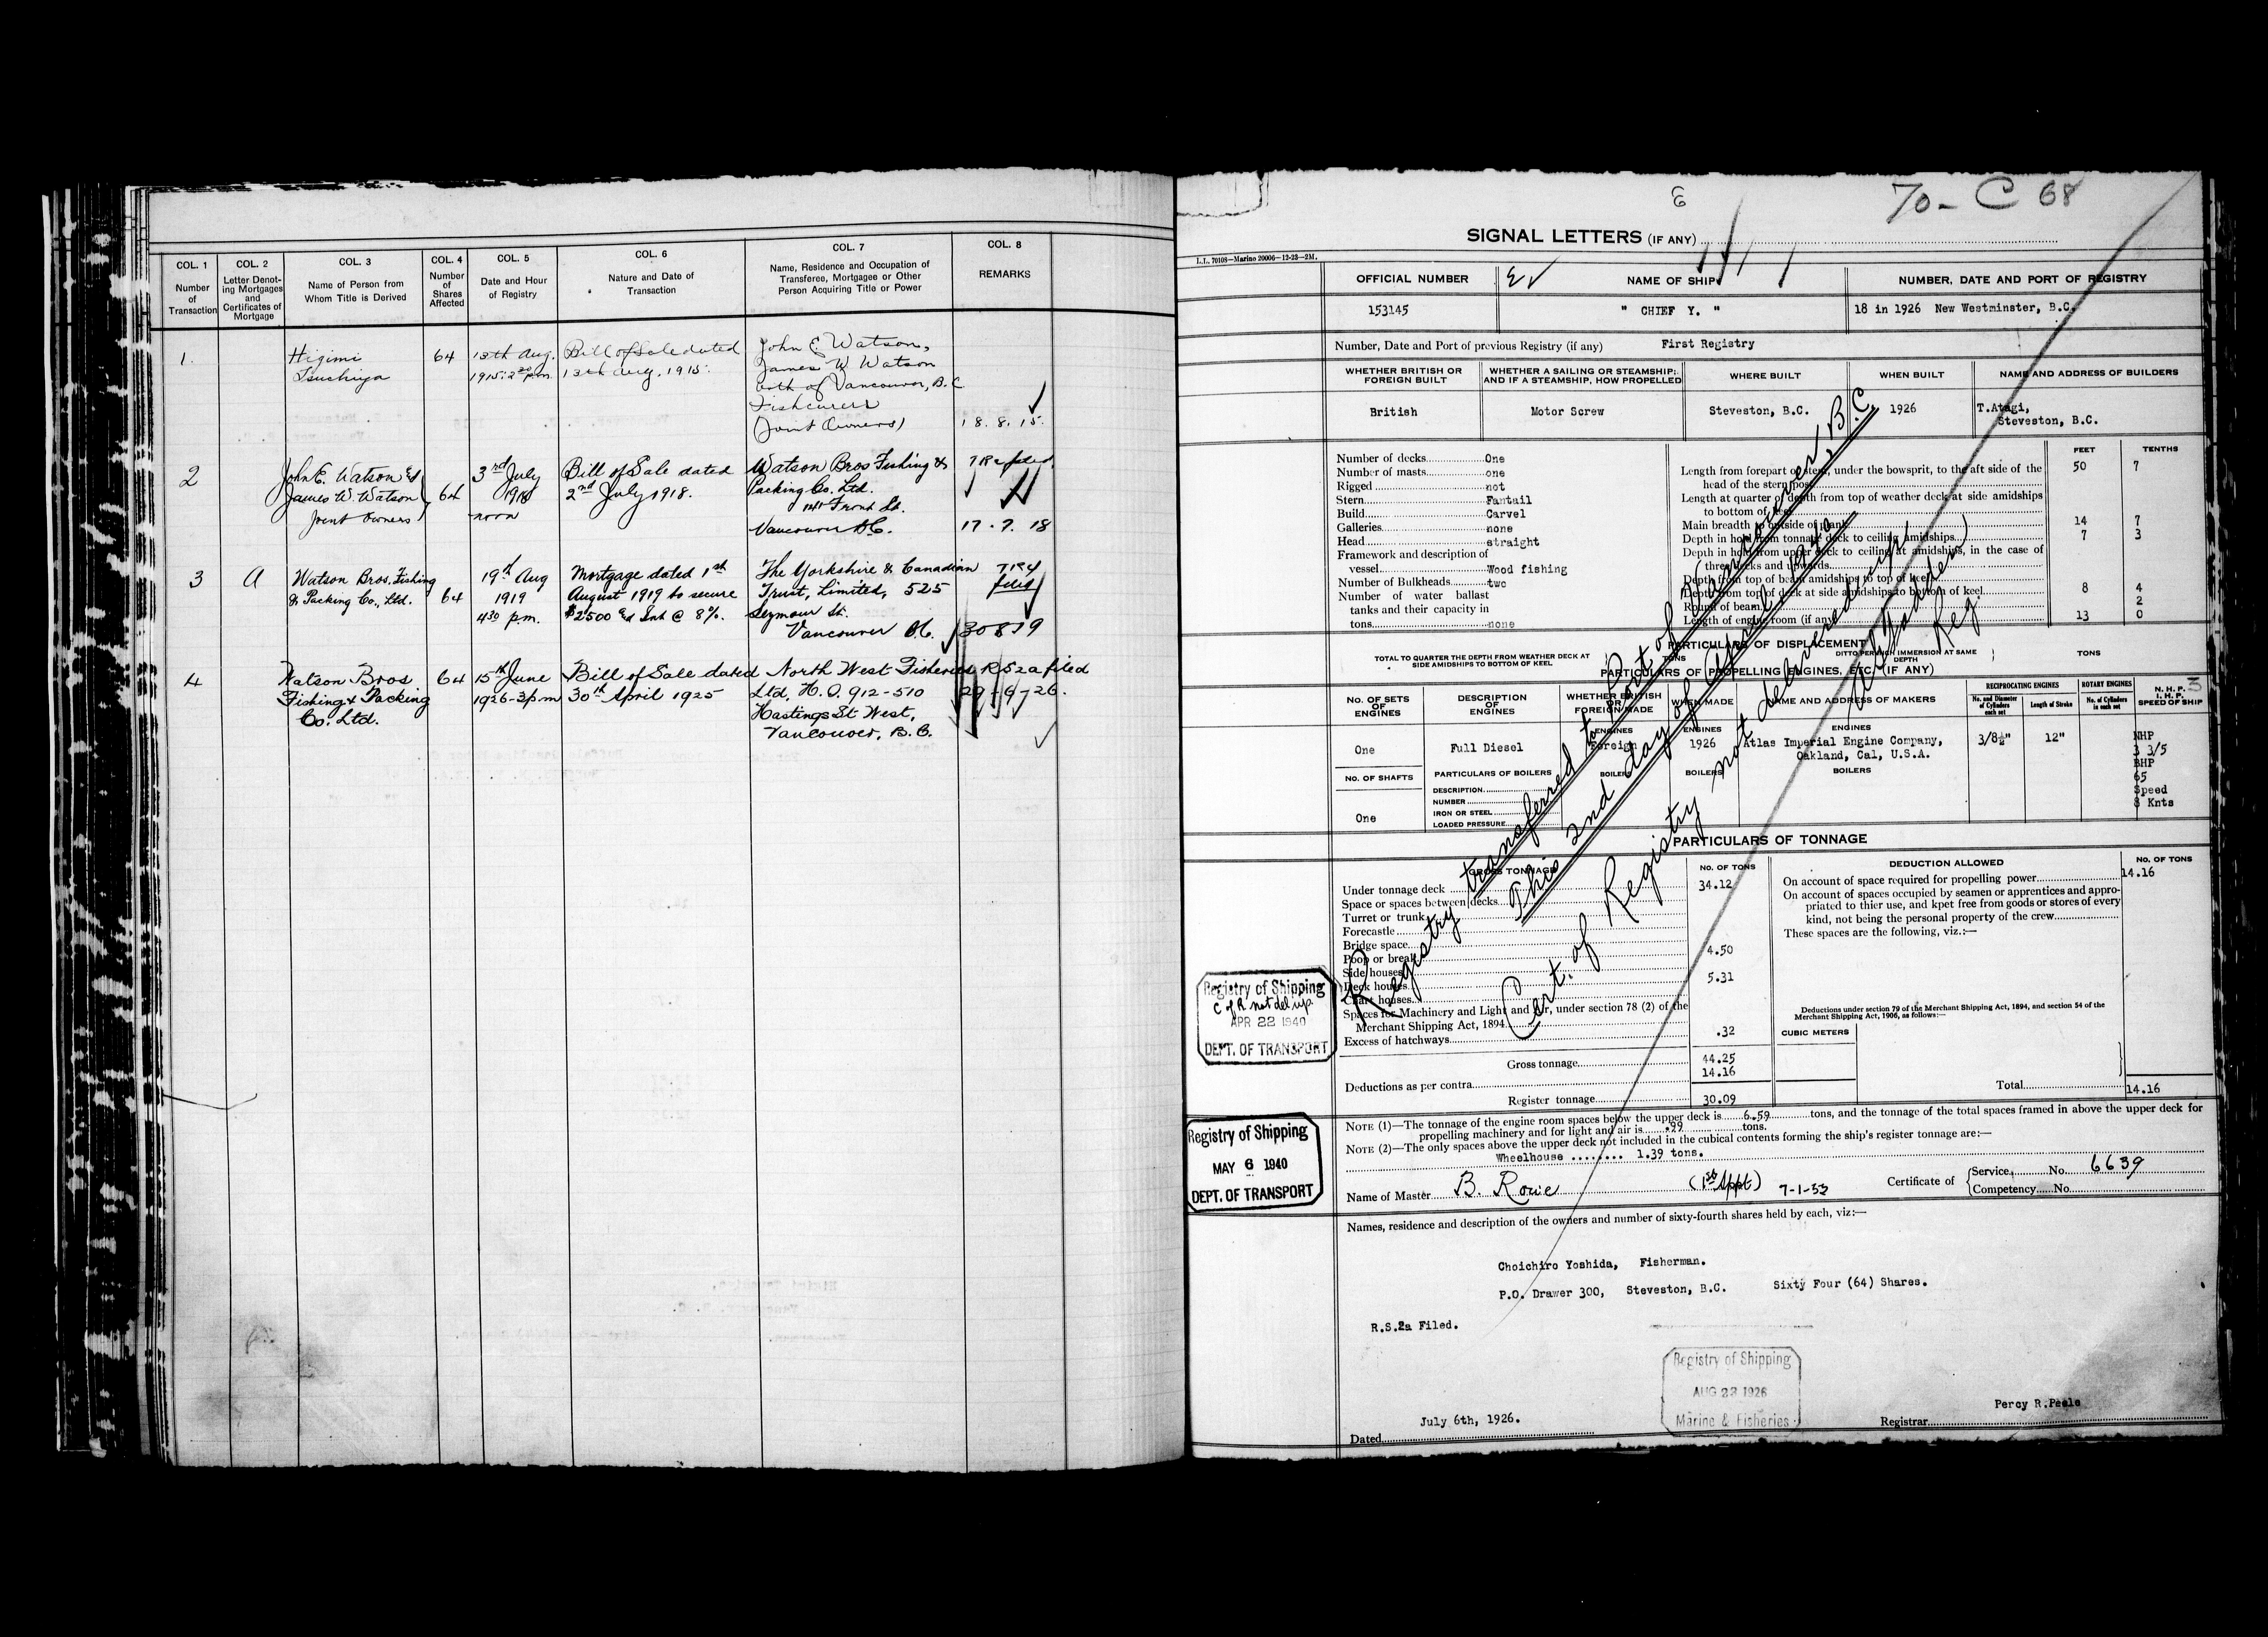 COL. 1
Number
of
Transaction
COL. 2
Letter Denot-
ing Mortgages
and
Certificates of
Mortgage
COL. 3
Name of Person from
Whom Title is Derived
COL. 4
Number
of
Shares
Affected
COL. 5
Date and Hour
of Registry
COL. 6
Nature and Date of
Transaction
COL. 7
Name, Residence and Occupation of
Transferee, Mortgagee or Other
Person Acquiring Title or Power
COL. 8
REMARKS
1.
Higimi
Tsuchiya
64
13th Aug.
1915: 2 30 p.m.
Bill of Sale dated
13th Aug. 1915.
John E. Watson,
James W Watson
both of Vancouver, B.C
Fishcurers
(Joint Owners)
18. 8. 15.
2
John E. Watson &
James W. Watson
Joint Owners
64
3rd July
1918
noon
Bill of Sale dated
2nd July 1918.
Watson Bros Fishing &
Packing Co. Ltd.
Front St.
Vancouver B.C.
17. 7. 18
3
A
Watson Bros. Fishing
& Packing Co., Ltd.
64
19th Aug
1919
4 30 p.m.
Mortgage dated 1st
August 1919 to secure
$2500 & Int @ 8%.
The Yorkshire & Canadian
Trust, Limited, 525
Seymour St.
Vancouver B.C.
30 8 19
4
Watson Bros
Fishing & Packing
Co. Ltd.
64
15th June
1926-3pm
Bill of Sale dated
30th April 1925
North West Fisheries
Ltd, H.O. 912-510
Hastings St West,
Vancouver, B.C.
RS2a filed
29-6-26.
70 - C 68
SIGNAL LETTERS (IF ANY)
L.L. 70108—Marine 20006—12-23—2M.
OFFICIAL NUMBER
NAME OF SHIP
NUMBER, DATE AND PORT OF REGISTRY
153145
" CHIEF Y. "
18 in 1926 New Westminster, B.C.
Number, Date and Port of previous Registry (if any) First Registry
WHETHER BRITISH OR
FOREIGN BUILT
WHETHER A SAILING OR STEAMSHIP;
AND IF A STEAMSHIP, HOW PROPELLED
WHERE BUILT
WHEN BUILT
NAME AND ADDRESS OF BUILDERS
British
Motor Screw
Steveston, B.C.
1926
T.Atagi,
Steveston, B.C.
Number of decks One
Number of masts one
Rigged not
Stern Fantail
Build Carvel
Galleries none
Head straight
Framework and description of
vessel Wood fishing
Number of Bulkheads two
Number of water ballast
tanks and their capacity in
tons none
FEET TENTHS
Length from forepart of stem, under the bowsprit, to the aft side of the
head of the stern post 50 7
Length at quarter of depth from top of weather deck at side amidships
to bottom of keel
Main breadth to outside of plank 14 7
Depth in hold from tonnage deck to ceiling amidships 7 3
Depth in hold from upper deck to ceiling at amidships, in the case of
three decks and upwards
Depth from top of beam amidships to top of keel
Depth from top of deck at side amidships to bottom of keel 8 4
Round of beam 2
Length of engine room (if any) 13 0
PARTICULARS OF DISPLACEMENT
TOTAL TO QUARTER THE DEPTH FROM WEATHER DECK AT
SIDE AMIDSHIPS TO BOTTOM OF KEEL
TONS
DITTO PER INCH IMMERSION AT SAME
DEPTH
TONS
PARTICULARS OF PROPELLING ENGINES, ETC. (IF ANY)
NO. OF SETS
OF
ENGINES
DESCRIPTION
OF
ENGINES
WHETHER BRITISH
OR
FOREIGN MADE
WHEN MADE
NAME AND ADDRESS OF MAKERS
RECIPROCATING ENGINES
No. and Diameter
of Cylinders
each set
Length of Stroke
ROTARY ENGINES
No. of Cylinders
in each set
N. H. P.
I. H. P.
SPEED OF SHIP
3
ENGINES
ENGINES
ENGINES
One
Full Diesel
Foreign
1926
Atlas Imperial Engine Company,
Oakland, Cal, U.S.A.
3/8½"
12"
NHP
3 3/5
BHP
65
Speed
8 Knts
NO. OF SHAFTS
One
PARTICULARS OF BOILERS
DESCRIPTION
NUMBER
IRON OR STEEL
LOADED PRESSURE
BOILERS
BOILERS
BOILERS
PARTICULARS OF TONNAGE
GROSS TONNAGE
NO. OF TONS
Under tonnage deck 34.12
Space or spaces between decks
Turret or trunk
Forecastle
Bridge space
Poop or break 4.50
Side houses
Deck houses 5.31
Chart houses
Spaces for Machinery and Light and Air, under section 78 (2) of the
Merchant Shipping Act, 1894
Excess of hatchways .32
Gross tonnage 44.25
Deductions as per contra 14.16
Register tonnage 30.09
DEDUCTION ALLOWED
NO. OF TONS
On account of space required for propelling power 14.16
On account of spaces occupied by seamen or apprentices and appro-
priated to thier use, and kpet free from goods or stores of every
kind, not being the personal property of the crew
These spaces are the following, viz.:—
Deductions under section 79 of the Merchant Shipping Act, 1894, and section 54 of the
Merchant Shipping Act, 1906, as follows:—
CUBIC METERS
Total 14.16
Registry transferred to Port of Vancouver, B.C.
This 2nd day of April 1940
Cert. of Registry not delivered up.
Reg
Registry of Shipping
C of R not del up.
APR 22 1940
DEPT. OF TRANSPORT
Registry of Shipping
MAY 6 1940
DEPT. OF TRANSPORT
NOTE (1)—The tonnage of the engine room spaces below the upper deck is 6.59 tons, and the tonnage of the total spaces framed in above the upper deck for
propelling machinery and for light and air is .99 tons.
NOTE (2)—The only spaces above the upper deck not included in the cubical contents forming the ship's register tonnage are:—
Wheelhouse ........ 1.39 tons.
Name of Master B. Rowe (1st Appt) 7-1-33
Certificate of
Service No. 6639
Competency No.
Names, residence and description of the owners and number of sixty-fourth shares held by each, viz:—
Choichiro Yoshida, Fisherman.
P.O. Drawer 300, Steveston, B.C. Sixty Four (64) Shares.
R.S.2a Filed.
Registry of Shipping
AUG 23 1926
Marine & Fisheries
July 6th, 1926.
Dated
Percy R.Peele
Registrar